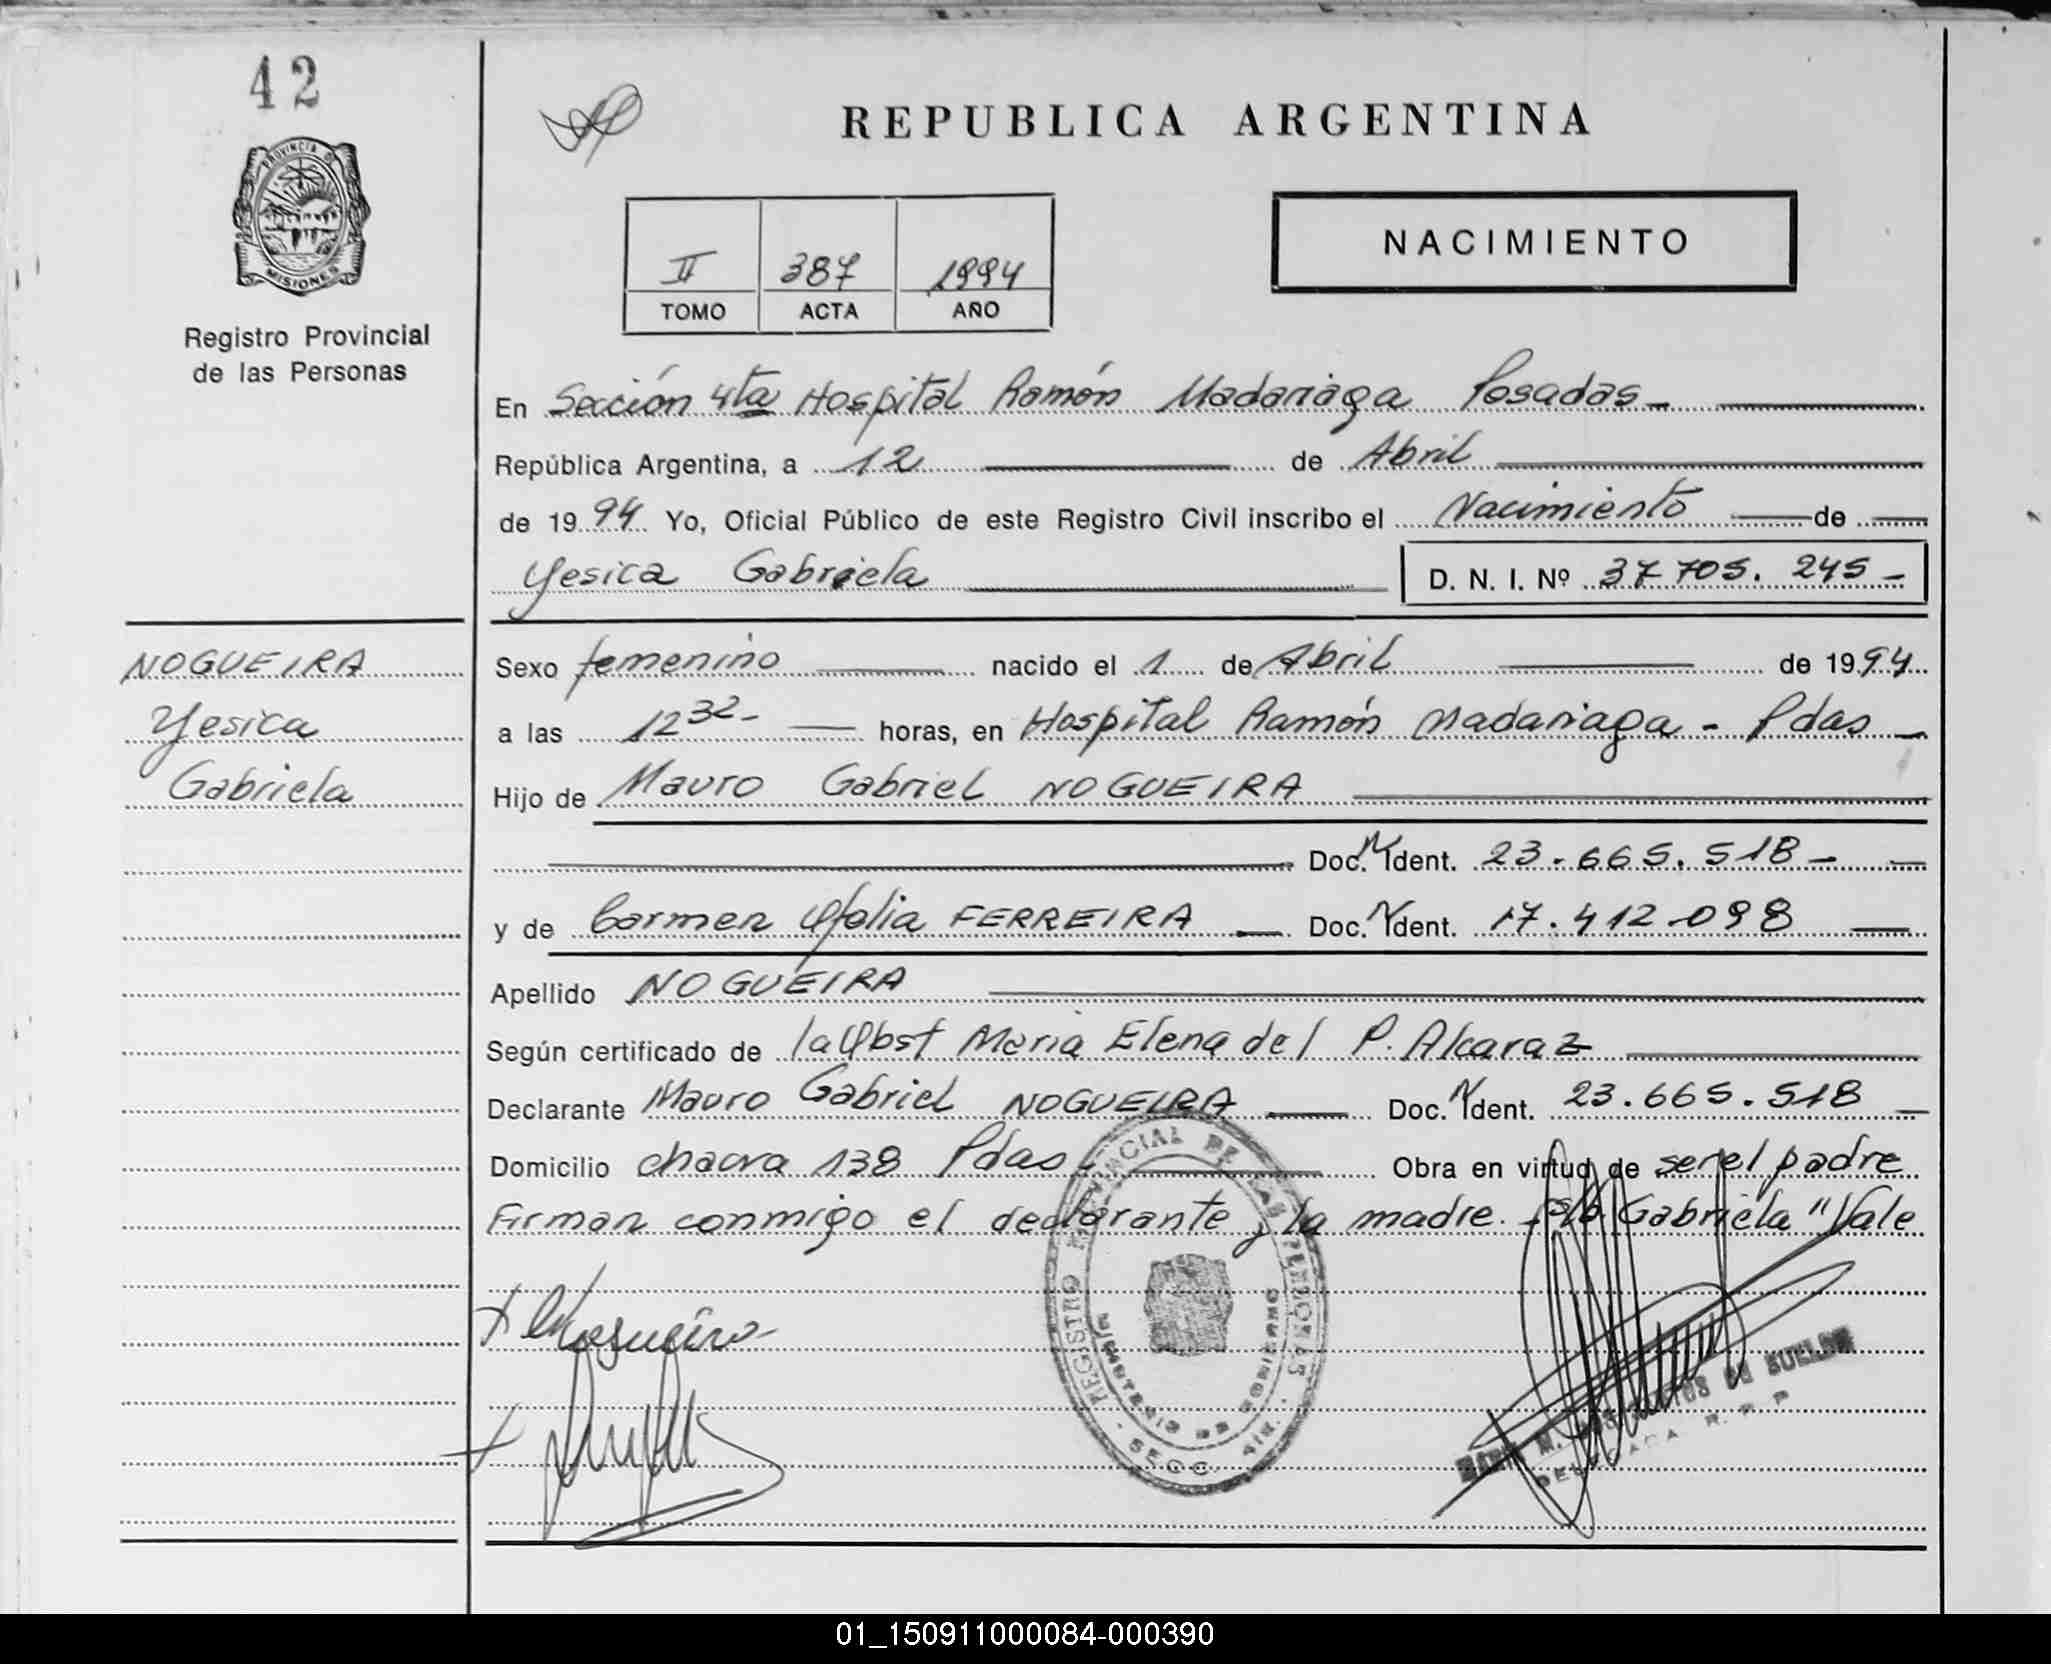 42
REPUBLICA ARGENTINA
PROVINCIA DE
MISIONES
NACIMIENTO
II 387 1994
TOMO ACTA AÑO
Registro Provincial
de las Personas
En Sección 4ta Hospital Ramón Madariaga Posadas
República Argentina, a 12 de Abril
de 1994 Yo, Oficial Público de este Registro Civil inscribo el Nacimiento de
Yesica Gabriela D. N. I. Nº 37 705. 245
NOGUEIRA
Yesica
Gabriela
Sexo femenino nacido el 1 de Abril de 1994
a las 12 32 horas, en Hospital Ramón Madariaga - Pdas
Hijo de Mauro Gabriel NOGUEIRA
Doc. N Ident. 23.665.518
y de Carmen Ofalia FERREIRA Doc. N Ident. 17.412.098
Apellido NOGUEIRA
Según certificado de la Obst Maria Elena del P. Alcaraz
Declarante Mauro Gabriel NOGUEIRA Doc. N Ident. 23.665.518
Domicilio chacra 138 Pdas. Obra en virtud de ser el padre
Firman conmigo el declarante y la madre. S/b Gabriela" Vale
REGISTRO PROVINCIAL DE LAS PERSONAS
01_150911000084-000390